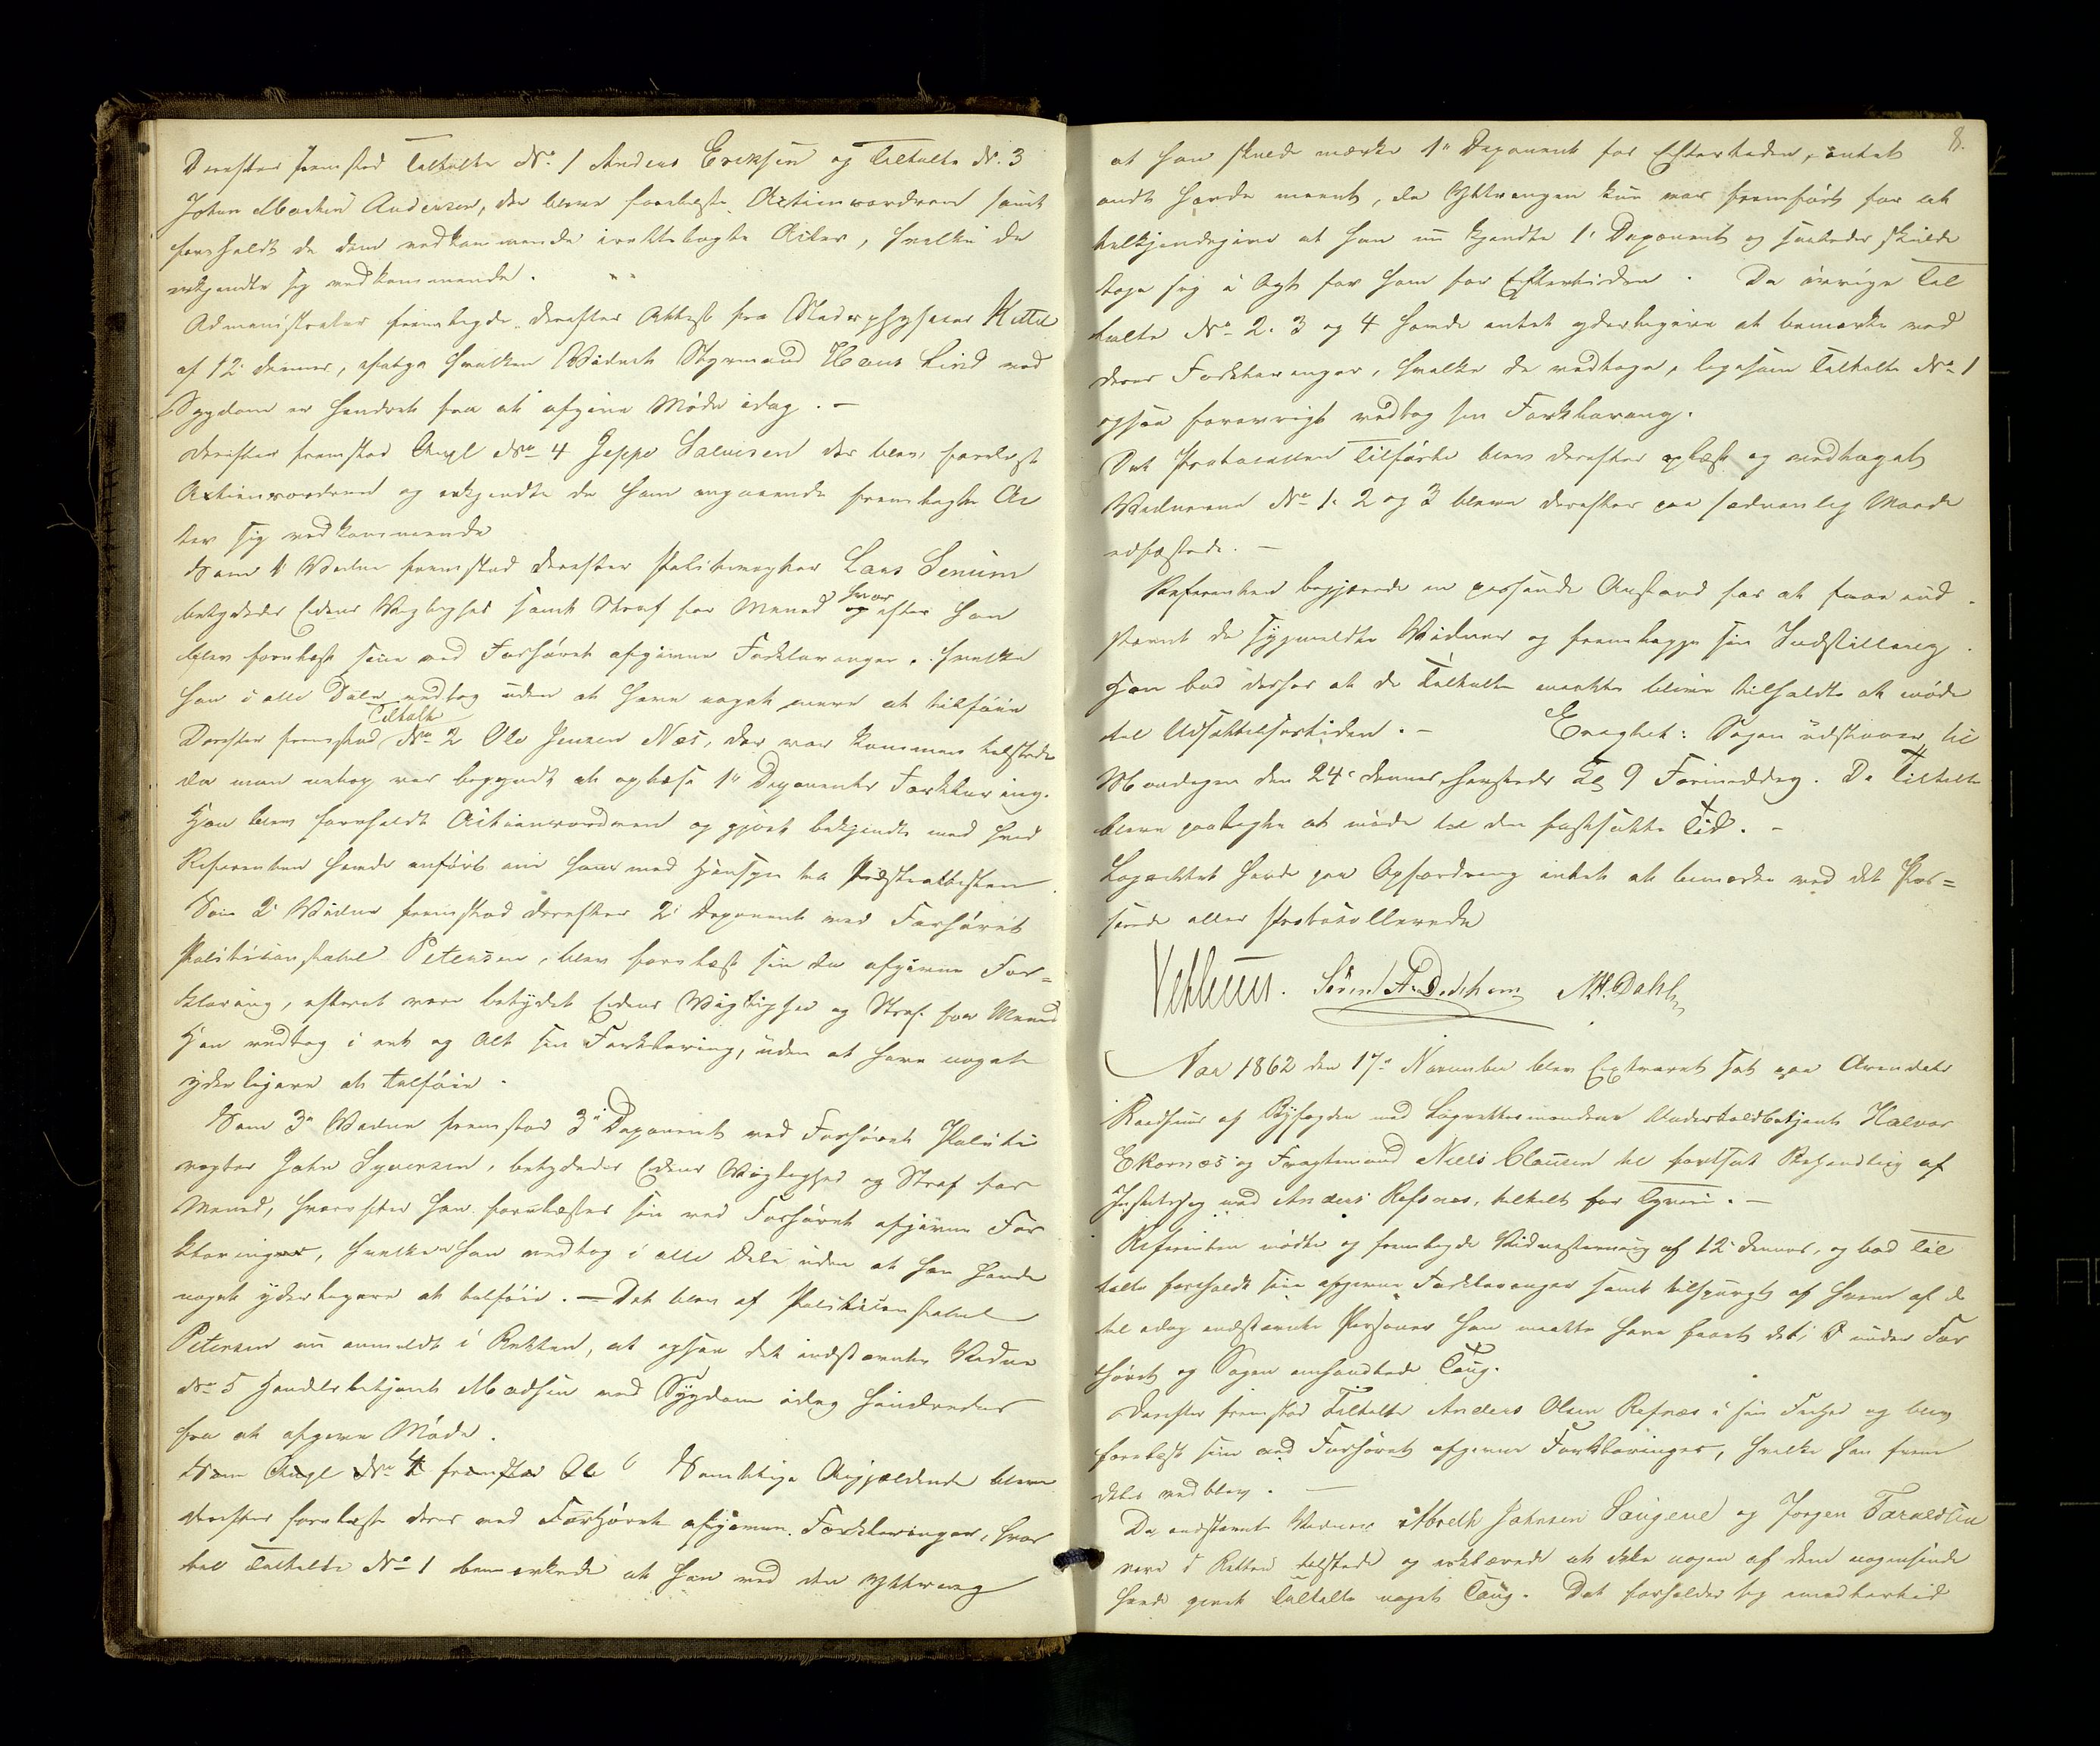 Derefter fremstod Tiltalte No. 1 Anders Eriksen og Tiltalte No. 3
Johan Martin Andersen, der bleve forelæste Actionsordren samt
foreholdt de dem vedkommende irettelagte Acter, hvilke de
erkjendte sig vedkommende.
Administrator fremlagde derefter Attest fra Stadsphysicus Kittel
af 12 dennes, ifølge hvilken Vidnet Styrmand Hans Lind ved
Sygdom er hindret fra at afgive Møde idag. —
Derefter fremstod Angl No 4 Jeppe Salvesen der blev forelæst
Actionsordren og erkjendte de ham angaaende fremlagte Ac
ter sig vedkommende
Som 1 Vidne fremstod derefter Politivægter Lars Senum
betydedes Edens Vigtighed samt Straf for Meened hvor
og efter han
blev forelæst sine ved Forhøret afgivne Forklaringer, hvilke
han i alle Dele vedtog uden at have noget mere at tilføie
Tiltalte
Derefter fremstod No 2 Ole Jensen Næs, der var kommen tilstede
da man netop var begyndt at oplæse 1ste Deponents Forklaring.
Han blev foreholdt Actionsordren og gjort bekjendt med hvad
Referenten havde anført om ham med Hensyn til Præsteattesten.
Som 2 Vidne fremstod derefter 2 Deponent ved Forhøret
Politiconstabel Petersen, blev forelæst sin da afgivne For=
klaring, efterat være betydet Edens Vigtighed og Straf for Meened
Han vedtog i eet og Alt sin Forklaring, uden at have noget
yderligere at tilføie.
Som 3die Vidne fremstod 3die Deponent ved Forhøret Politi
vægter John Syversen, betydedes Edens Vigtighed og Straf for
Meened, hvorefter han forelæstes sin ved Forhøret afgivne For
klaringer, hvilken han vedtog i alle Dele uden at han havde
noget yderligere at tilføie. — Det blev af Politiconstabel
Petersen nu anmeldt i Retten, at ogsaa det indstævnte Vidne
No 5 Handelsbetjent Madsen ved Sygdom idag hindredes
fra at afgive Møde.
Som Angl No 4 fremstod Ole Samtlige Angjældende bleve
derefter forelæste deres ved Forhøret afgivne Forklaringer, hvor
til Tiltalte No 1 bemærkede at han ved den Yttring
8.
at han skulde mærke 1ste Deponent for Eftertiden, intet
ondt havde meent, da Yttringen kun var fremført for at
tilkjendegive at han nu kjendte 1ste Deponent og saaledes skulde
tage sig i Agt for ham for Eftertiden. De øvrige Til
talte No 2. 3 og 4 havde intet yderligere at bemærke ved
deres Forklaringer, hvilke de vedtoge, ligesom Tiltalte No 1
ogsaa forøvrigt vedtog sin Forklaring.
Det Protocollen Tilførte blev derefter oplæst og vedtaget
Vidnerne No 1. 2 og 3 bleve derefter paa sædvanlig Maade
edfæstede. —
Referenten begjærede en passende Anstand for at faae ind
stævnt de sygmeldte Vidner og fremlægge sin Indstilling.
Han bad derhos at de Tiltalte maatte blive tilholdte at møde
til Udsættelsestiden. — Eragtet: Sagen udstaaer til
Mandagen den 24de dennes hersteds Kl 9 Formiddag. De Tiltalte
bleve paalagte at møde til den fastsatte Tid. —
Lagrettet havde paa Opfordring intet at bemærke ved det Pas=
serede eller Protocollerede
Sørend A. Dedekam M. Dahl
Aar 1862 den 17de November blev Extraret sat paa Arendals
Raadhuus af Byfogden med Lagrettesmændene Undertoldbetjent Halvor
Ekornæs og Fragtemand Niels Clausen til fortsat Behandling af
Justitssag mod Anders Refsnæs, tiltalt for Tyveri. —
Referenten mødte og fremlagde Vidnestævning af 12 dennes, og bad Til
talte foreholdt sine afgivne Forklaringer samt tilspurgt af hvem af de
til idag indstævnte Personer han maatte have faaet det i og under For
høret og Sagen omhandlede Toug.
Derefter fremstod Tiltalte Anders Olsen Refnæs i sin Frihed og blev
forelæst sine ved Forhøret afgivne Forklaringer, hvilke han frem
deles vedblev. —
De indstævnte Vidner Johnsen Saugene og Jørgen Taraldsen
vare i Retten tilstede og erklærede at ikke nogen af dem nogensinde
havde givet Tiltalte noget Toug. Det forholder sig imidlertid